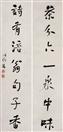 茶分六一泉中味
詩有涪翁句子香